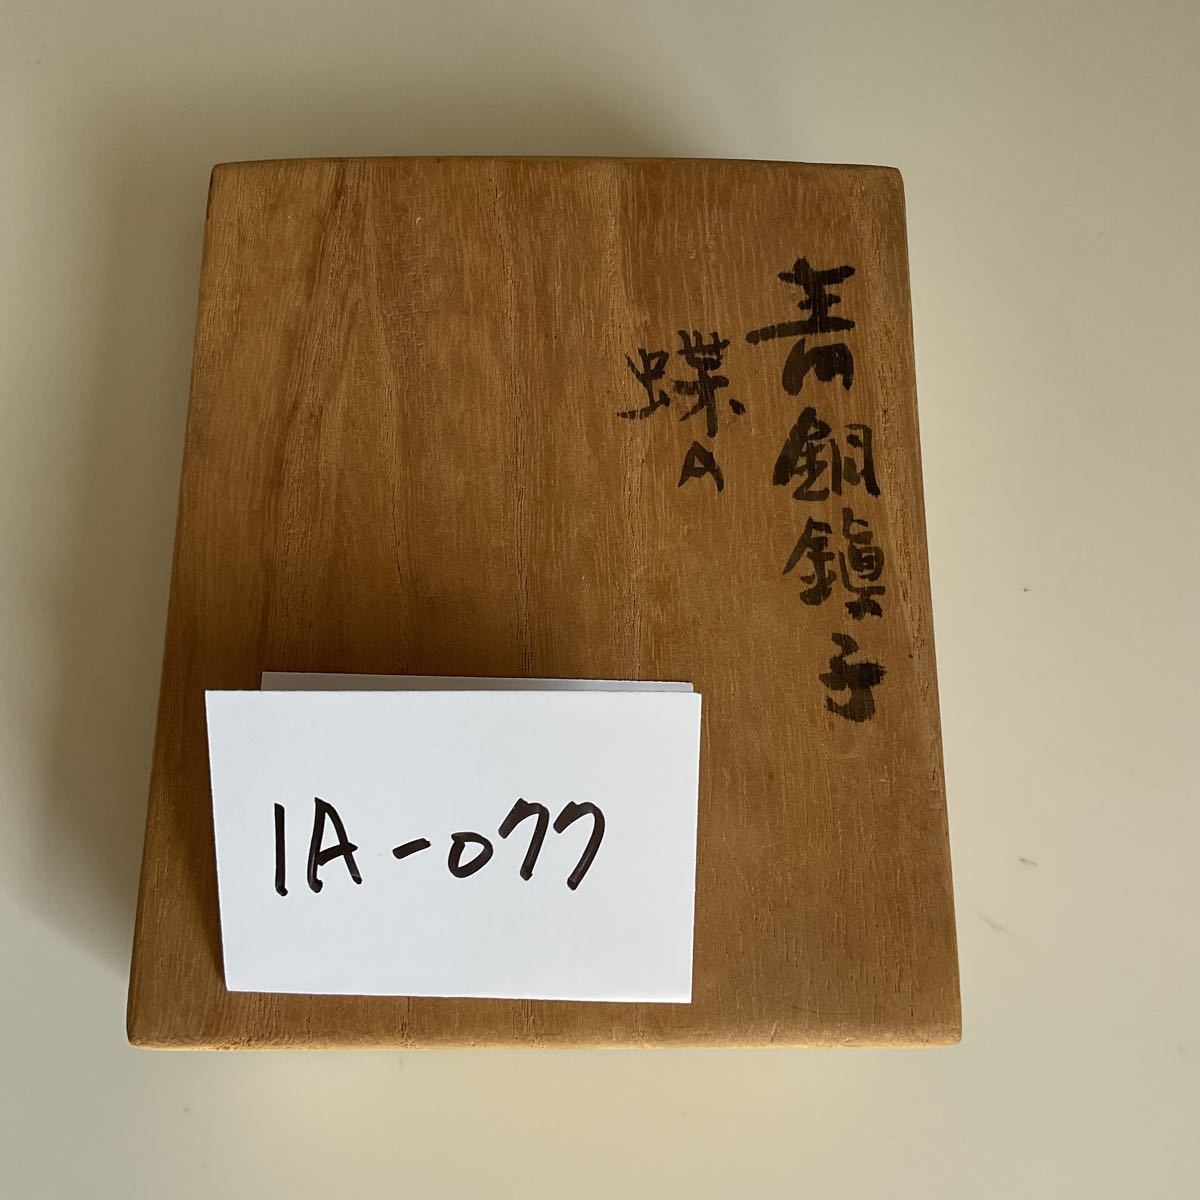 青銅鎮子
蝶A
1A-077